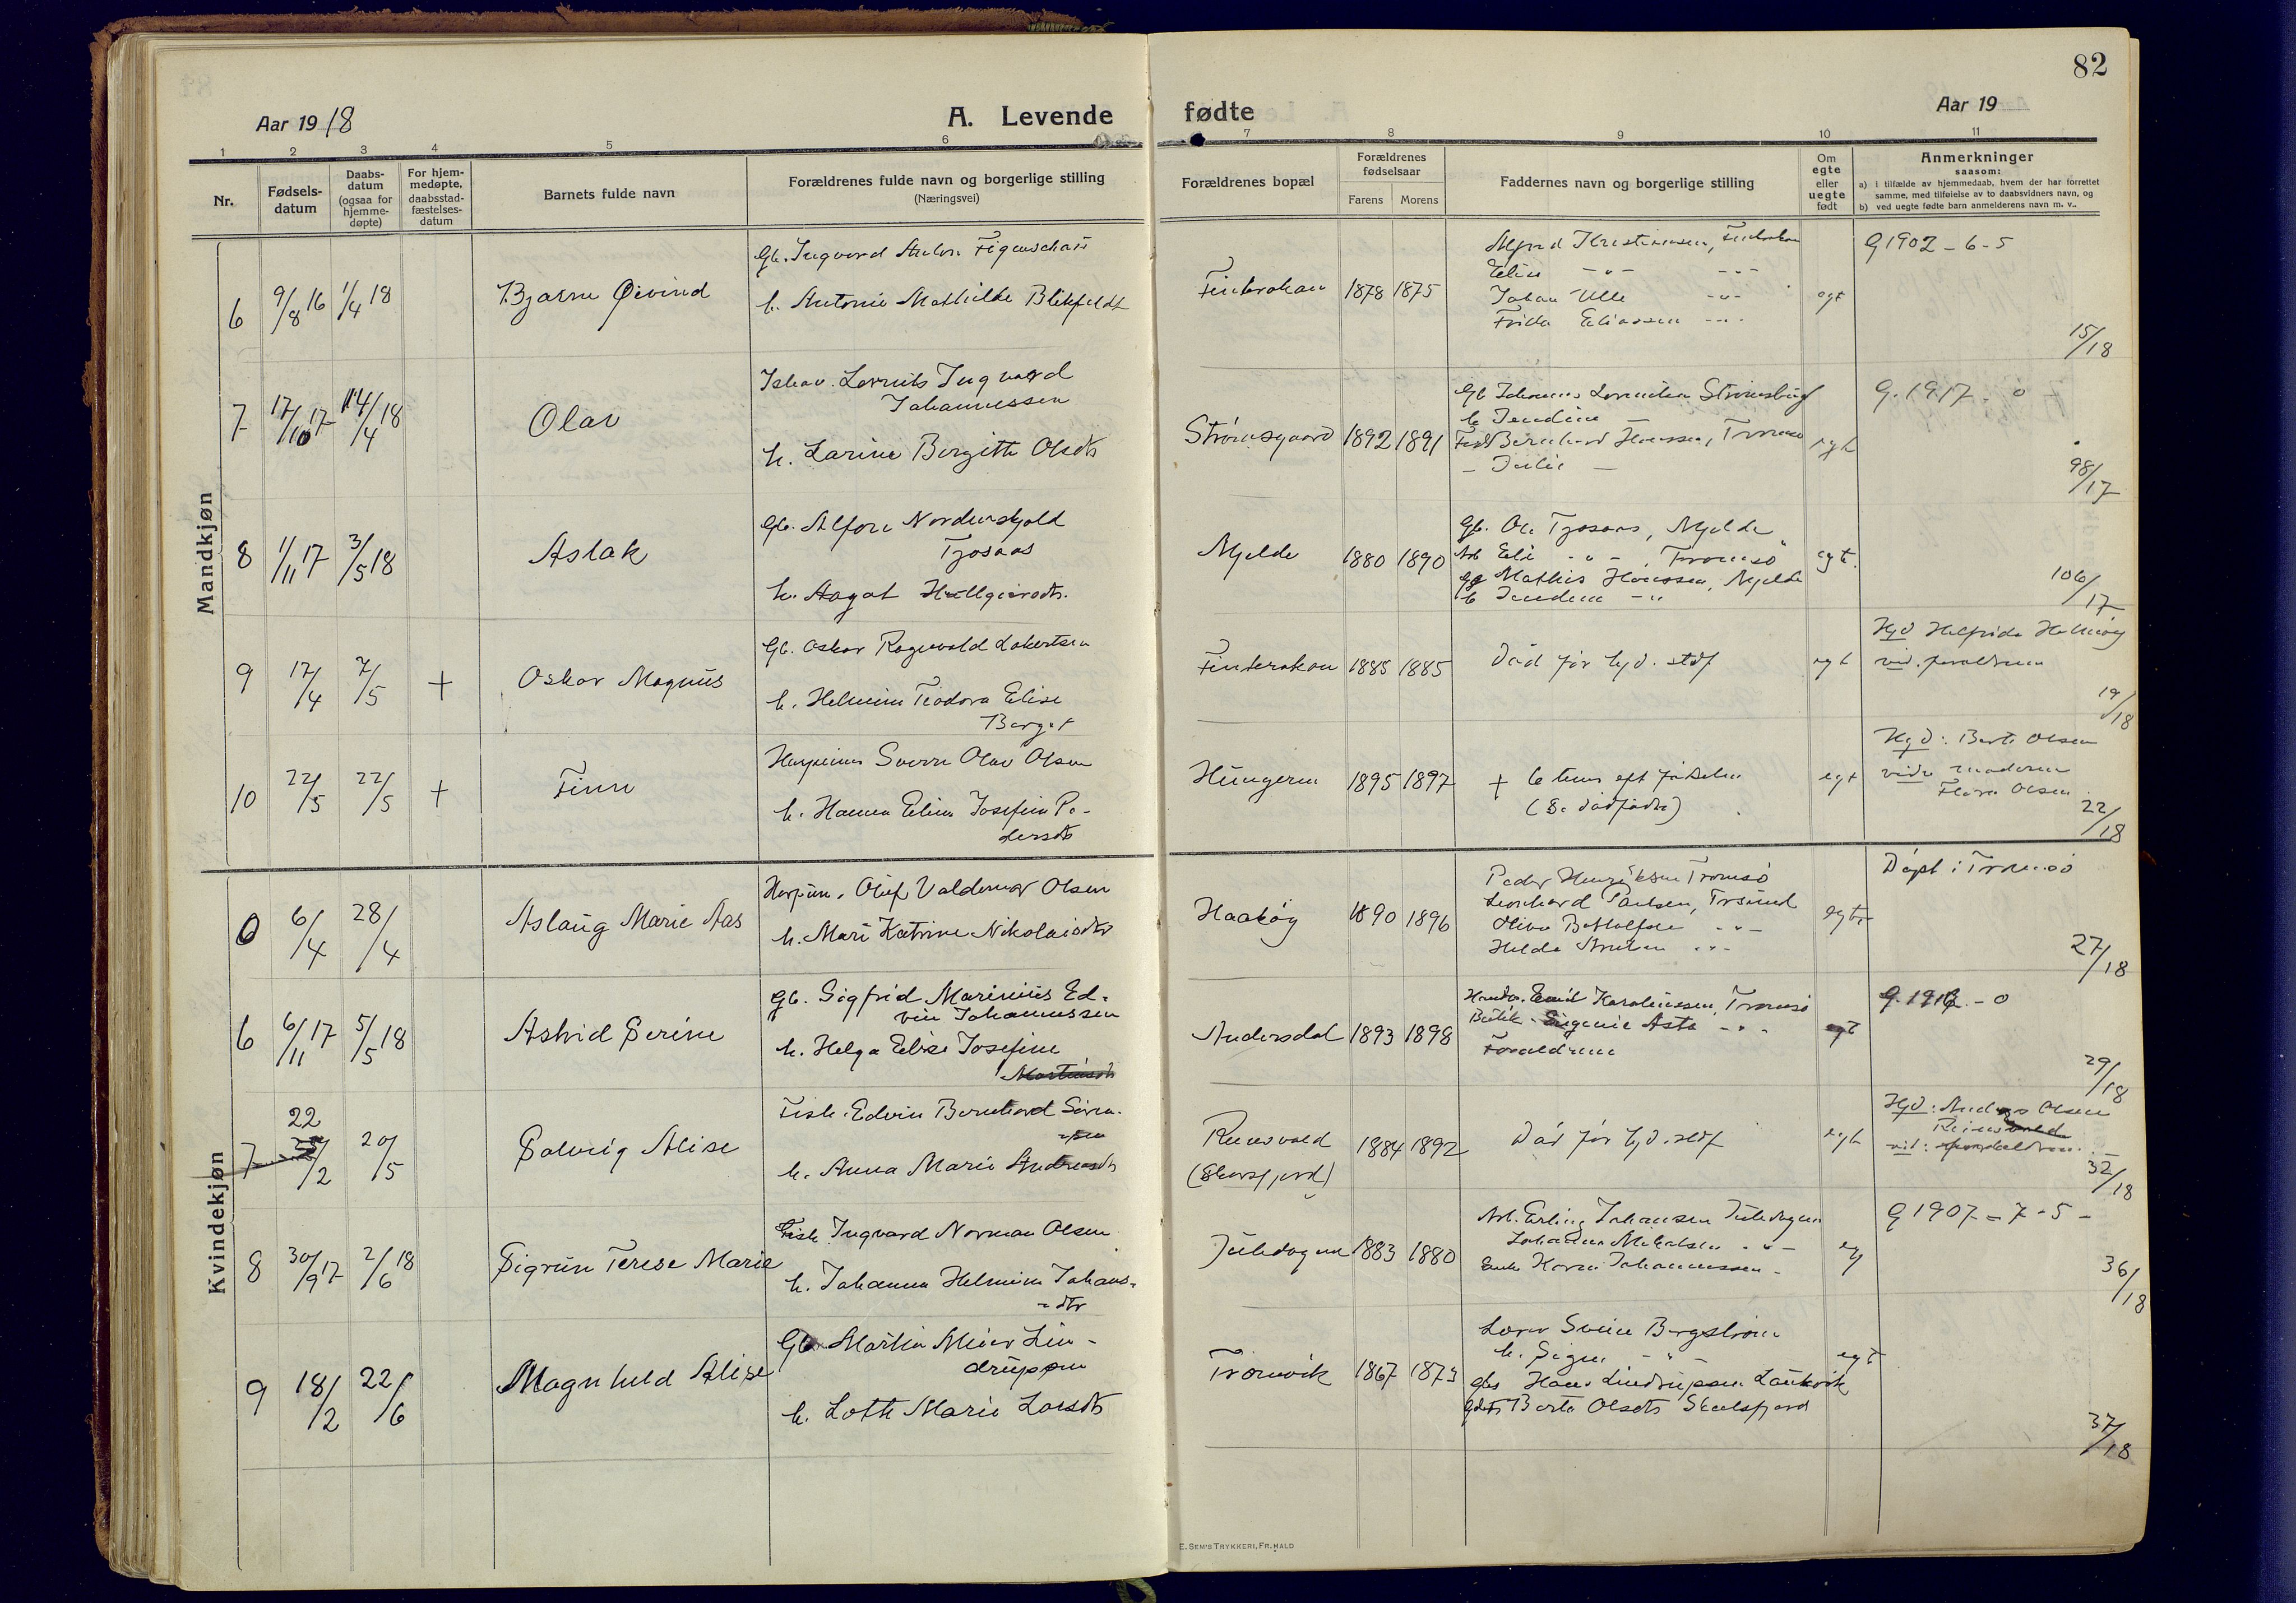 82
Aar 1918
A. Levende fødte
Aar 19
1 2 3 4 5 6 7 8 9 10 11
Nr.
Fødsels-
datum
Daabs-
datum
(ogsaa for
hjemme-
døpte)
For hjem-
medøpte,
daabsstad-
fæstelses-
datum
Barnets fulde navn
Forældrenes fulde navn og borgerlige stilling
(Næringsvei)
Forældrenes bopæl
Forældrenes
fødselsaar
Farens Morens
Faddernes navn og borgerlige stilling
Om
egte
eller
uegte
født
Anmerkninger
saasom:
a) i tilfælde av hjemmedaab, hvem der har forrettet
samme, med tilføielse av to daabsvidners navn, og
b) ved uegte fødte barn anmelderens navn m. v..
Mandkjøn
6 9/8 16 1/4 18 Bjarne Øivind
Gb. Ingvard Anton Figenschau
h. Antonie Mathilde Blikfeldt
1878 1875
Alfred Kristiansen,
Elise -"- -"-
Johan Ulle -"-
Frida Eliassen -"-
egt
G 1902 - 6 - 5
15/18
7 17/10 17 14/4 18 Olav
Ingvard
Johannessen
h. Larine Bergitte Olsdtr
Strømsgaard 1892 1891
Gb Johannes Lorentsen Strømsbug
h Jendine
Bernhard Hanssen, Tromsø
- Julie -
egt
G. 1917 - 0
98/17
8 1/11 17 3/5 18 Aslak
Gb. Alfon Nordenskjold
Tjosaas
h. Aagot Hallgiersdtr.
Mjelde 1880 1890
Gb. Ole Tjosaas, Mjelde
Arb Eli -"- Tromsø
Mathis Hanssen, Mjelde
h Jendine -"-
egt.
106/17
9 17/4 7/5 + Oskar Magnus
Gb. Oskar Ragnvald Lokertsen
h. Helmine Teodora Elise
Berget
1885 1885
Död før hjd. stdf
egt
Hjd Helfrida
vid. foraldrene
19/18
10 22/5 22/5 + Finn
Sverre Olav Olsen
h. Hanna Eline Josefine Pe-
dersdtr
Hungeren 1895 1897
+ 6 tim eft fødselen
(Se dødfødte)
egt
Hjd: Berte Olsen
vidn moderen
Flora Olsen
22/18
Kvindekjøn
6/4 28/4 Aslaug Marie Aas
Olaf Valdemar Olsen
h. Mari Katrine Nikolaisdtr
Haakøy 1890 1896
Peder Henriksen Tromsø
Leonhard Paulsen, Trsund
-"-
-"-
egte
Døpt i Tromsø
27/18
6 6/11 17 5/5 18 Astrid Serine
Gb. Sigfrid Marinius Ed-
vin Johannessen
h. Helga Elise Josefine
Martinsdtr
Andersdal 1893 1898
Emil Karoliussen, Tromsø
Butik. Eugenie Asta -"-
Foraldrene
egt
29/18
7 22/2 20/5 Solveig Alise
Fisk. Edvin Bernhard Søren-
sen
h. Anna Marie Andreasdtr
Reinsvold
1884 1892
Död før hjd. stdf
egt
Hjd: Anders Olsen
Reinsvold
vid: foraldrene
32/18
8 30/9 17 2/6 18 Sigrun Terese Marie
Fisk Ingvard Norman Olsen
h. Johanna Helmine Johans-
dtr
1883 1880
Arb. Erling Johansen
Johanna Mikalsen -"-
Enke Karen Johannessen -
eg
G 1907 - 7 - 5 -
36/18
9 18/2 22/6 Magnhild Alise
Gb. Martin Meier Lin-
drupsen
h. Lotte Marie Larsdtr
Tromvik 1867 1873
Lærer Svein Bergstrøm
h. Signe -"-
Hans Lindrupsen Laukvik
Berte Olsdtr Skulsfjord
egt
37/18
E. SEM'S TRYKKERI, FR. HALD